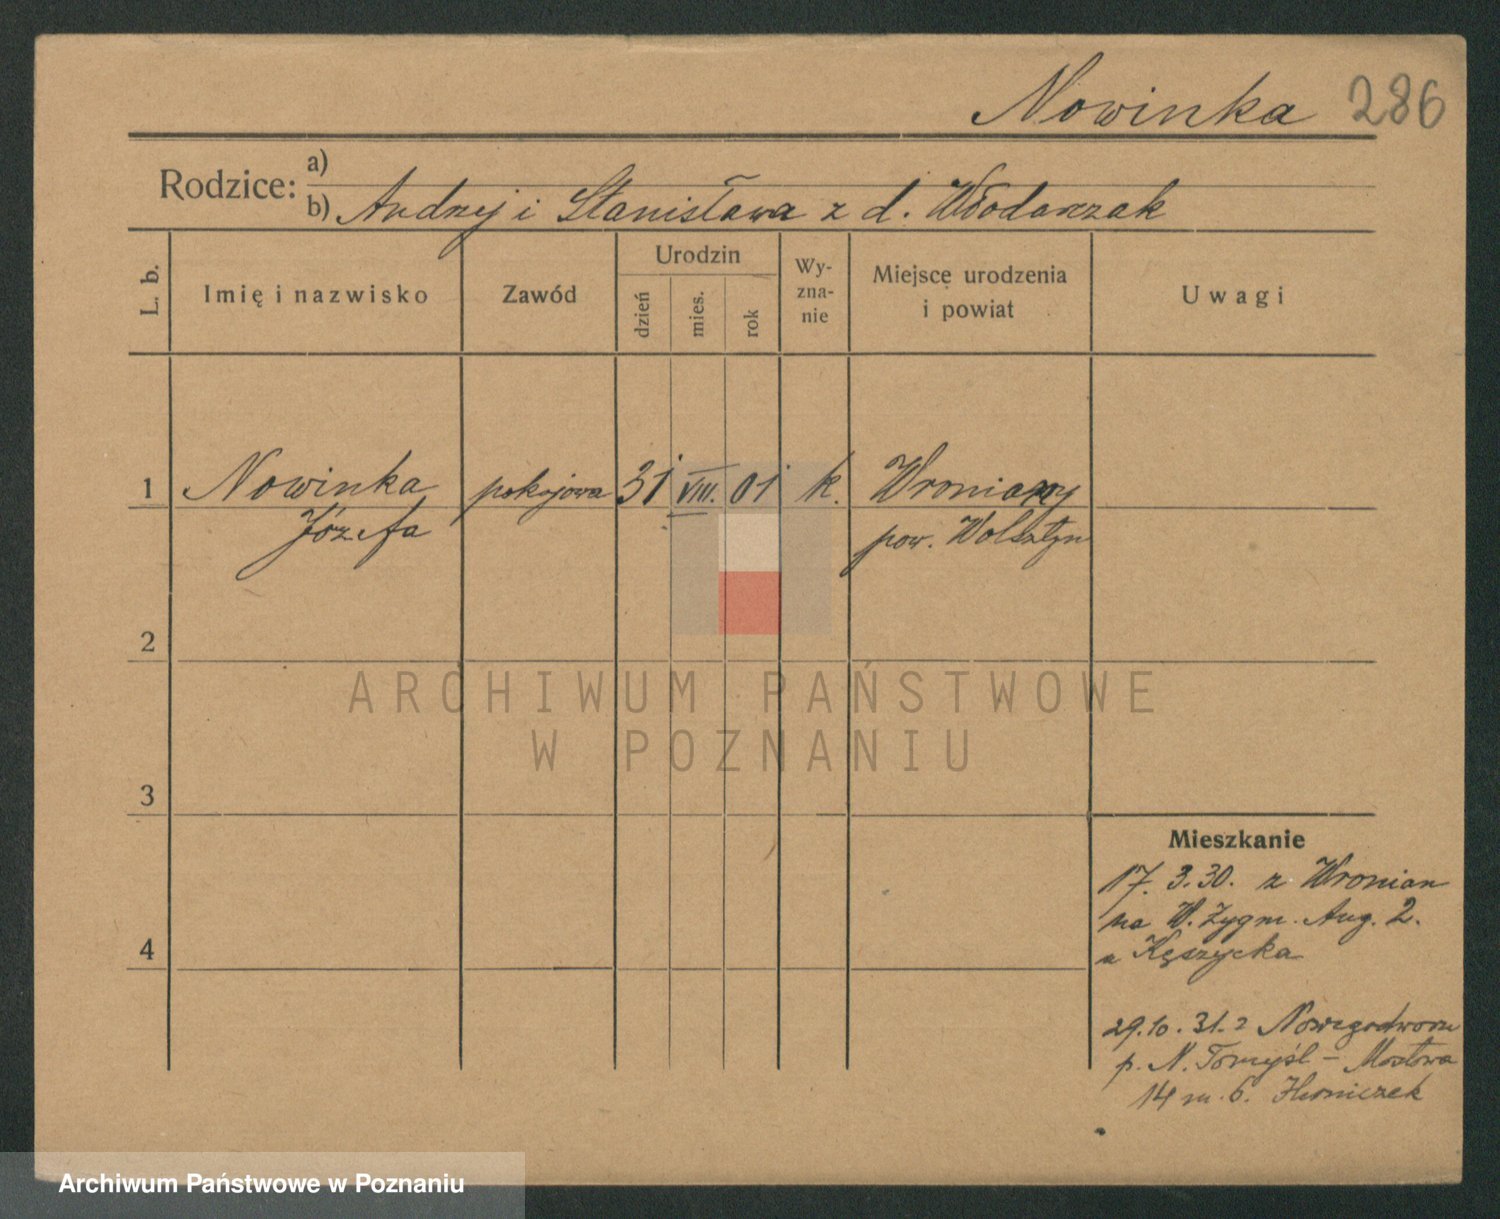 Nowinka 286
Rodzice: a)
b) Andrzej i Stanisława z d. Włodarczak
L. b.
Imię i nazwisko
Zawód
Urodzin
dzień
mies.
rok
Wy-
zna-
nie
Miejsce urodzenia
i powiat
Uwagi
1 Nowinka pokojowa 31 VIII. 01 k. Wroniany
Józefa pow. Wolsztyn
2
ARCHIWUM PAŃSTWOWE
W POZNANIU
3
Mieszkanie
17. 3. 30. z Wronian
na W. Zygm. Aug. 2.
4
u Kęszycka
29. 10. 31. z Nowegodworu
p. N. Tomyśl – Mostowa
14 m. 6.
Archiwum Państwowe w Poznaniu